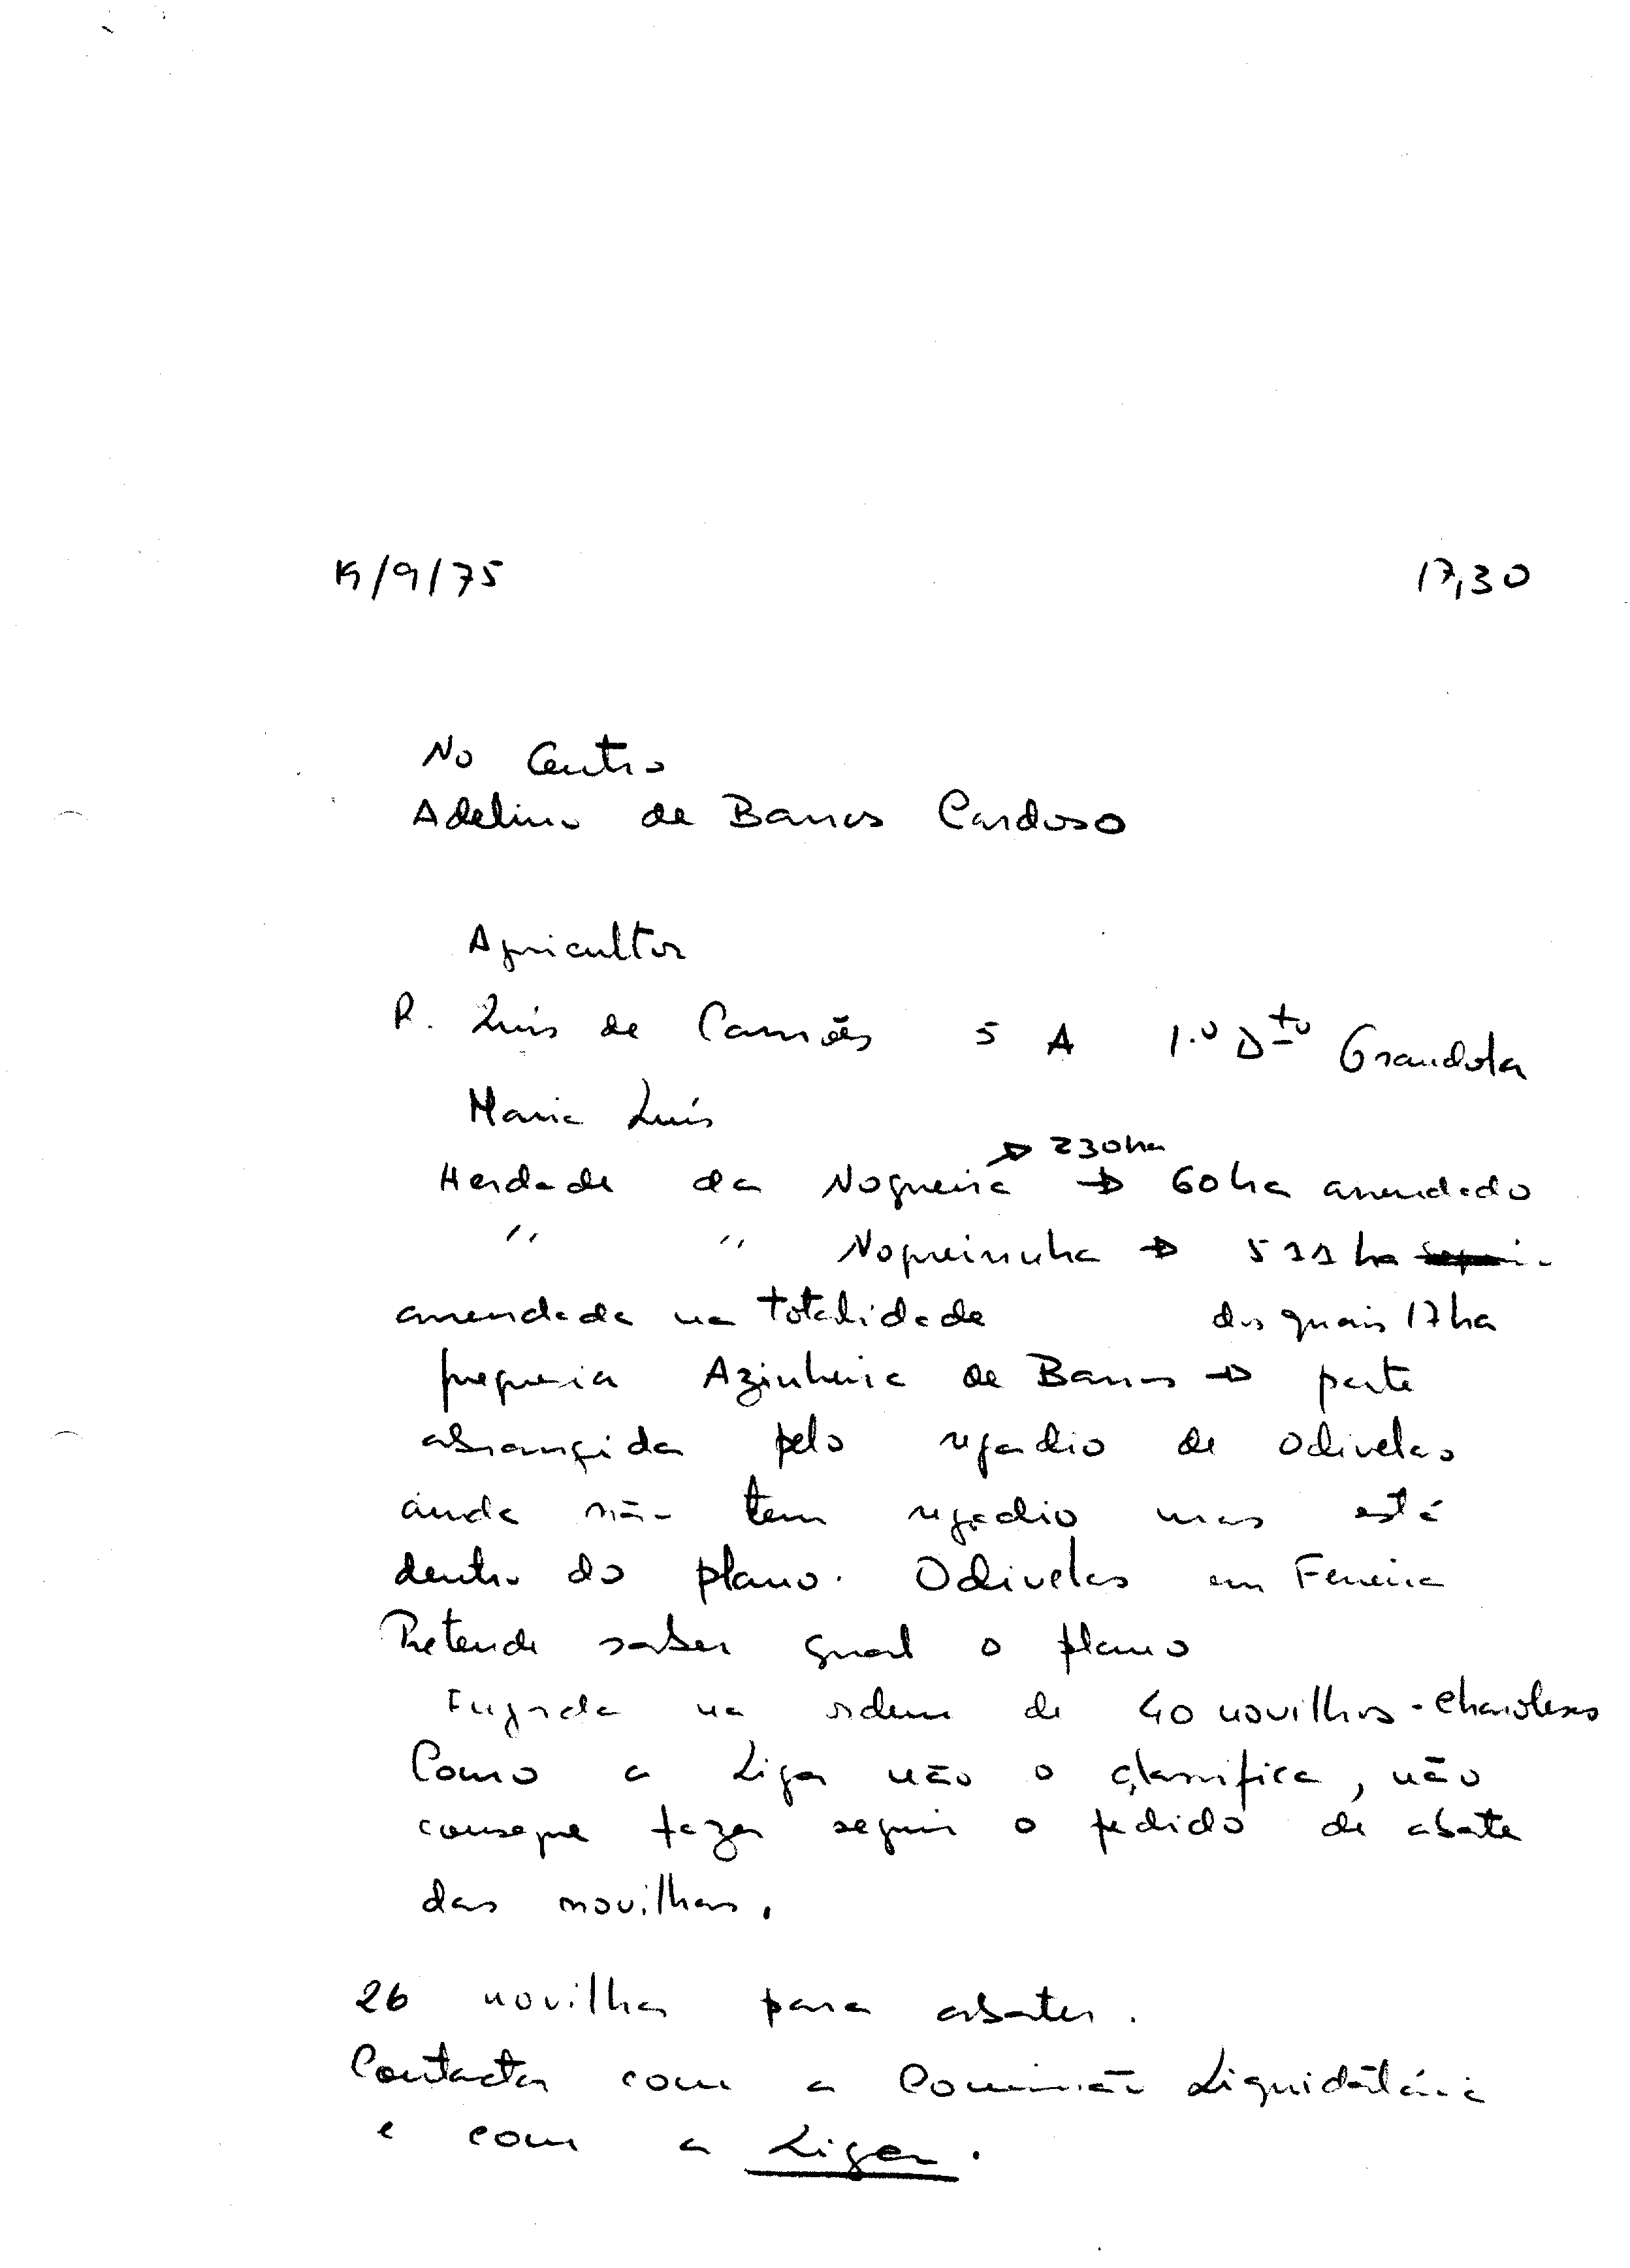 19/9/75 17,30
No Centro
Adelino de Barros Cardoso
Agricultor
R. Luís de Camões 5 A 1.º Dto Grandola
Maria Luís
→ 230ha
Herdade da Nogueira → 60ha arrendado
" " Nogueirinha → 511 ha
arrendada na totalidade dos quais 17ha
freguesia Azinheira de Barros → parte
abrangida pelo regadio de Odivelas
ainda não tem regadio mas está
dentro do plano. Odivelas em Ferreira
Pretende saber qual o plano
Engorda na ordem de 40 novilhos - charoleses
Como a Liga não o classifica, não
consegue fazer seguir o pedido de abate
das novilhas.
26 novilhas para abater.
Contactar com a Comissão Liquidatária
e com a Liga.